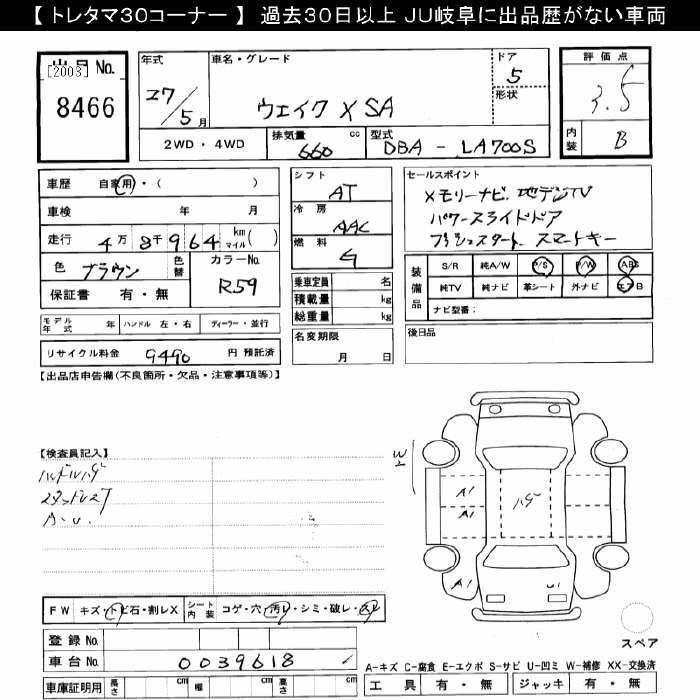 【 トレタマ30コーナー 】 過去30日以上 JU岐阜に出品歴がない車両
出品 No.
[2003]
8466
年式 27/5月
車名・グレード
ウェイク X SA
ドア 5
形状
評価点 3.5
内装 B
2WD・4WD
排気量 cc 660
型式 DBA - LA700S
車歴 自家用・( )
車検 年 月
走行 4万8千964 km マイル( )
色 ブラウン 色替 カラーNo. R59
保証書 有・無
モデル年式 年 ハンドル 左・右 ディーラー・並行
リサイクル料金 9490 円 預託済
シフト AT
冷房 AAC
燃料 G
乗車定員 名
積載量 kg
総重量 kg
名変期限 月 日
セールスポイント
メモリーナビ. 地デジTV
パワースライドドア
プッシュスタート スマートキー
装備品
S/R 純A/W P/S P/W ABS
純TV 純ナビ 革シート 外ナビ エアB
ナビ型番:
後日品
【出品店申告欄(不良箇所・欠品・注意事項等)】
【検査員記入】
ハンドルハゲ
A・U.
W1
A1
A1
ハゲ
A1
U1
FW キズ・トビ石・割レX シート内装 コゲ・穴・汚レ・シミ・破レ・スレ
登録 No.
車台 No. 0039618
車庫証明用 長さ cm 幅 cm 高さ cm
スペア
A-キズ C-腐食 E-エクボ S-サビ U-凹ミ W-補修 XX-交換済
工具 有・無 ジャッキ 有・無